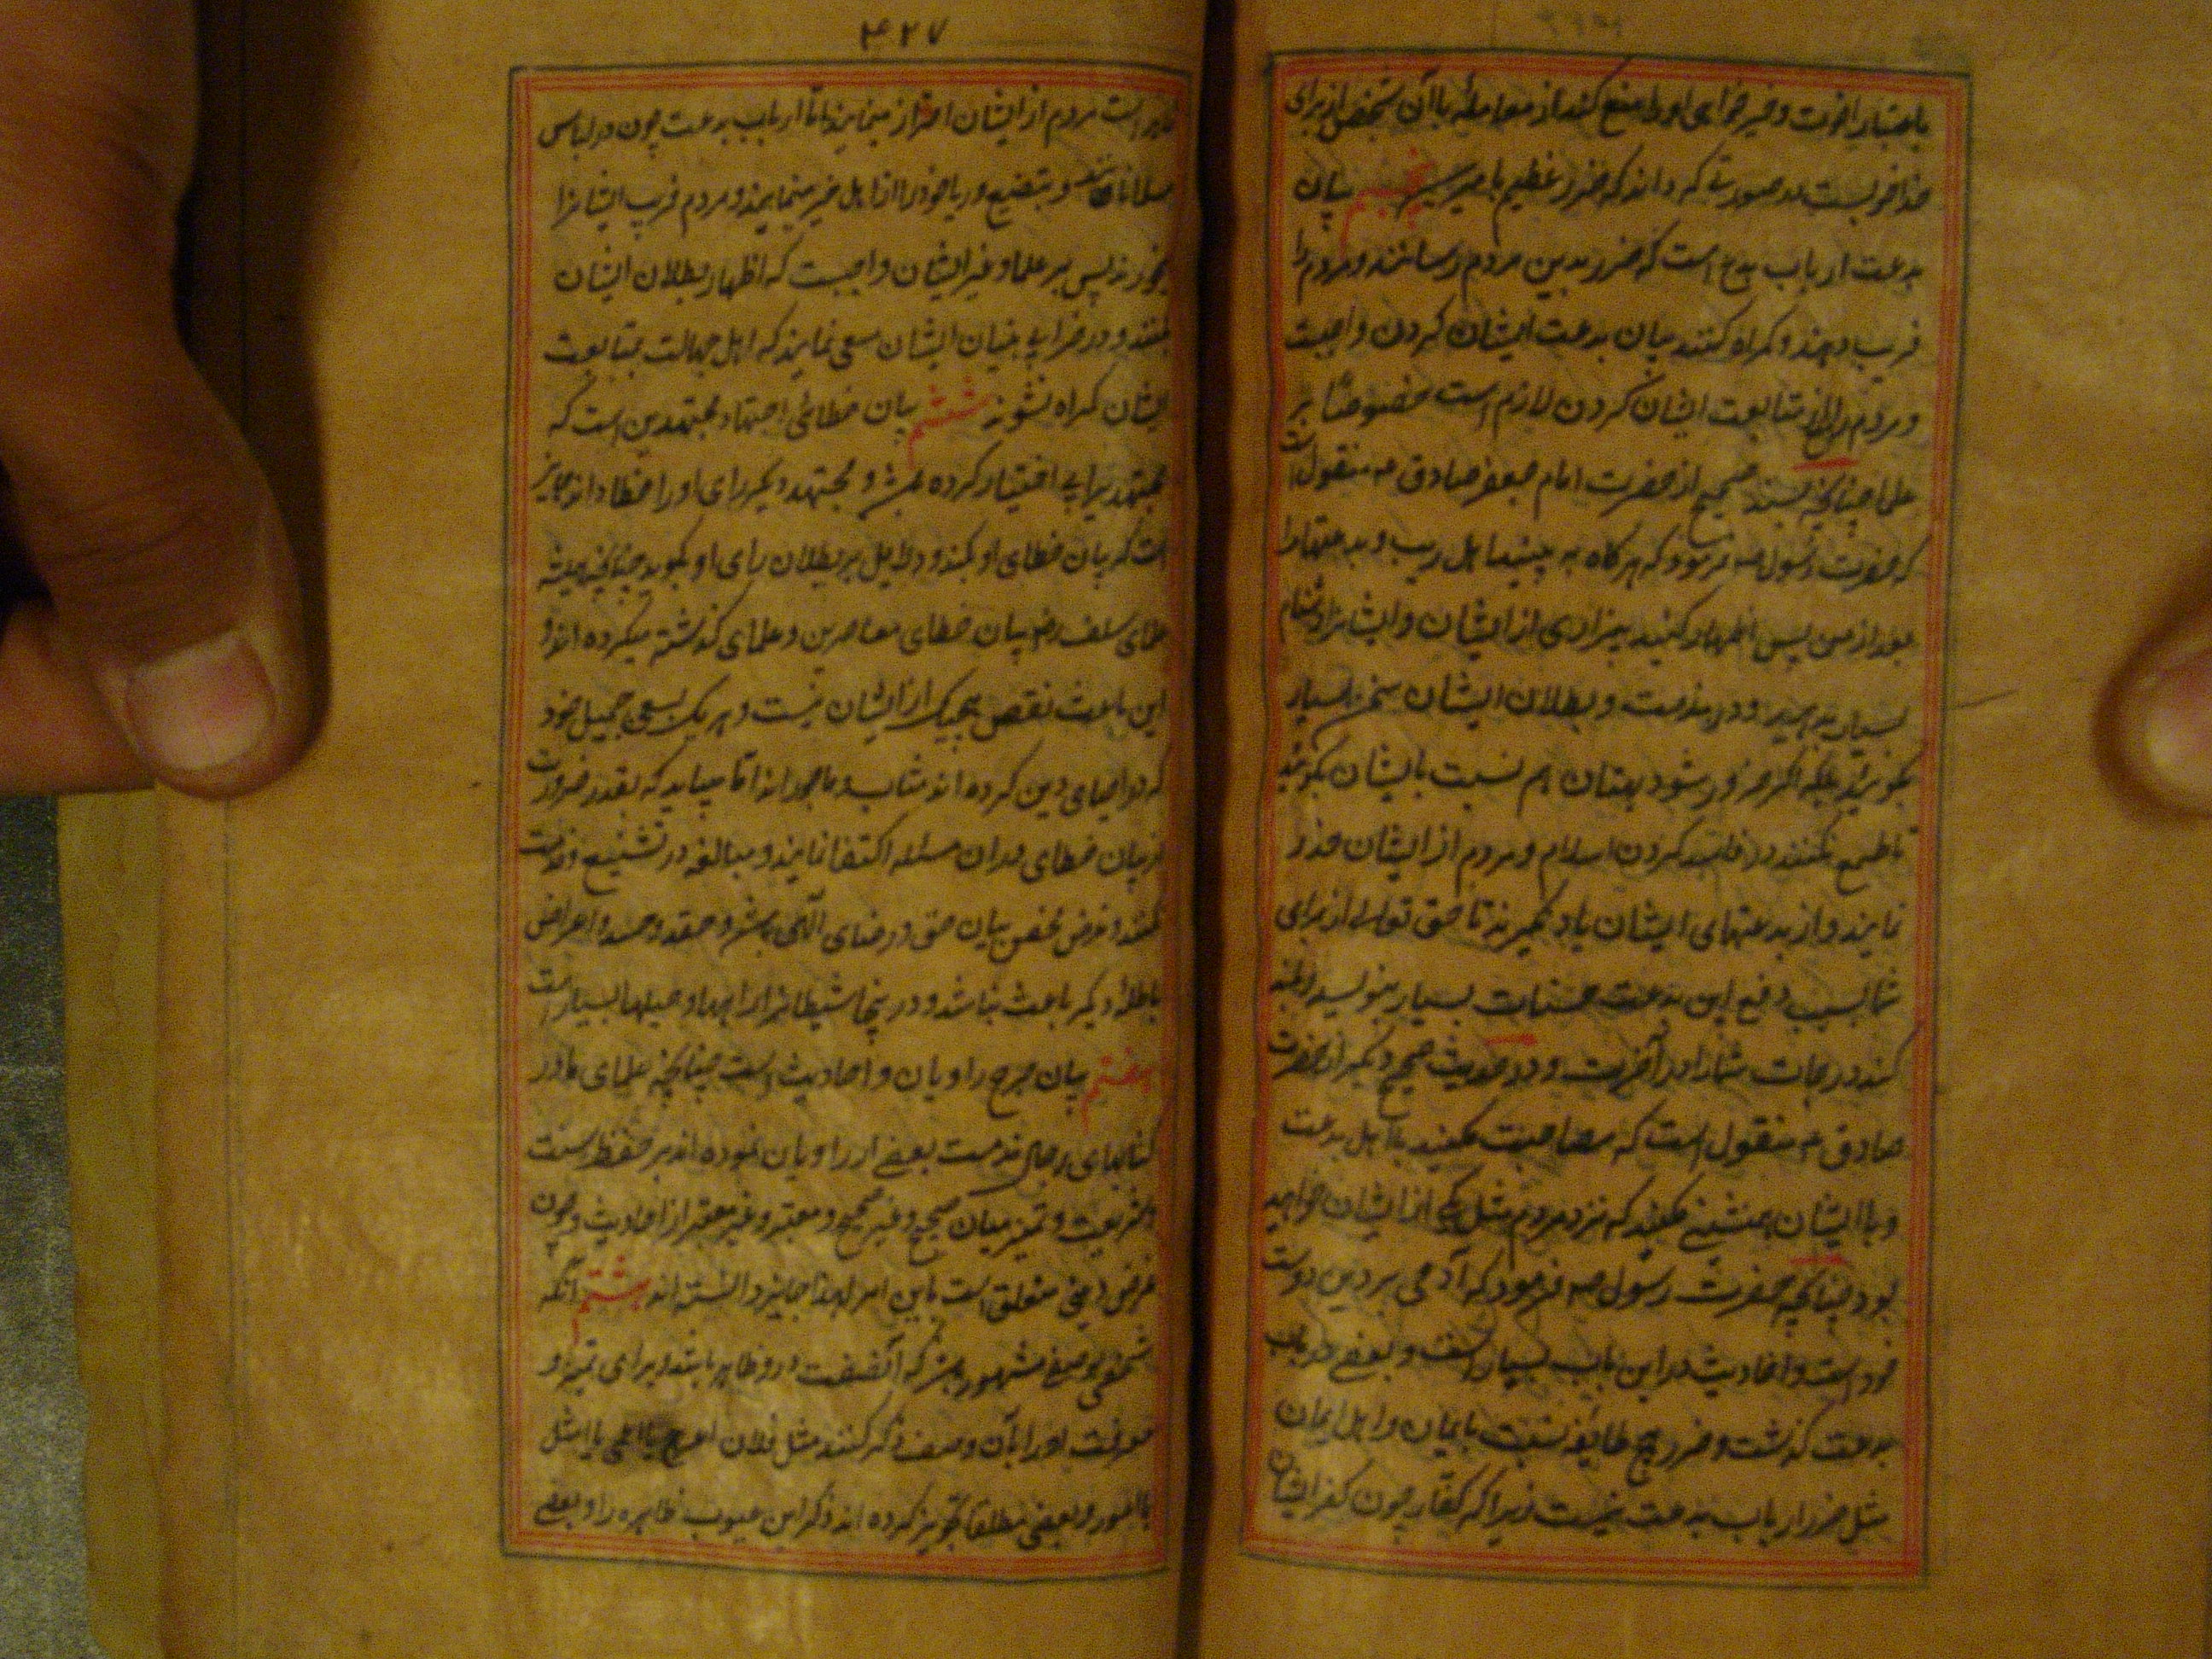 باعتبار اخوت و خیرخواهی او را منع کند از معامله با آن شخص از برای
خدا خوبست در صورتی که داند که ضرر عظیم با میرسد پنجم بیان
بدعت ارباب بدع است که ضرر بدین مردم رسانند و مردم را
فریب دهند و کمراه کنند بیان بدعت ایشان کردن واجبست
و مردم را از متابعت ایشان کردن لازم است خصوصا بر
علما چنانچه بسند صحیح از حضرت امام جعفر صادق ع منقول است
که حضرت رسول ص فرمود که هرکاه به بینید اهل ریب و بدعتها را
بعد از من پس اظهار کنید بیزاری از ایشان و ایشانرا دشنام
بسیار بدهید و در مذمت و بطلان ایشان سخن بسیار
بکوئید بلکه اکر ضرور شود بهتان هم نسبت بایشان بکوئید
تا طمع نکنند در فاسد کردن اسلام و مردم از ایشان حذر
نمایند و از بدعتهای ایشان یاد نکیرند تا حق تعالی از برای
شما بسبب دفع این بدعت حسنات بسیار بنویسد و بلند
کند درجات شما را در آخرت و در حدیث صحیح دیکر از حضرت
صادق ع منقول است که مصاحبت مکنید با اهل بدعت
و با ایشان همنشینی مکنید که نزد مردم مثل یکی از ایشان خواهید
بود چنانچه حضرت رسول ص فرمود که آدمی بر دین دوست
خود است و احادیث در این باب بسیار است و بعضی در باب
بدعت کذشت و ضرر هیچ طایفه نسبت بایمان و اهل ایمان
مثل ضرر ارباب بدعت نیست زیرا که کفار چون کفر ایشان
۴۲۷
ظاهر است مردم از ایشان احتراز مینمایند اما ارباب بدعت چون در لباس
مسلمانان و بتصنع و ریا خود را از اهل خیر مینمایند و مردم فریب ایشانرا
میخورند پس بر علما و غیر ایشان واجبست که اظهار بطلان ایشان
بکنند و در خرابی بنیان ایشان سعی نمایند که اهل جهالت بمتابعت
ایشان کمراه نشوند ششم بیان خطای اجتهاد مجتهدین است که
مجتهدی رایی اختیار کرده باشد و مجتهد دیکر رای او را خطا داند جایز
است که بیان خطای او بکند و دلایل بر بطلان رای او بکوید چنانچه همیشه
علمای سلف رض بیان خطای معاصرین و علمای کذشته میکرده اند و
این باعث نقص هیچیک از ایشان نیست و هر یک بسعی جمیل خود
که در احیای دین کرده اند مثاب و ماجورند اما میباید که بقدر ضرورت
از بیان خطای در ان مسئله اکتفا نمایند و مبالغه در تشنیع و مذمت
نکنند و غرض محض بیان حق و رضای الهی باشد و حقد و حسد و اعراض
باطله دیکر باعث نباشد و در اینجا شیطانرا راهها و حیلها بسیار است
هفتم بیان جرح راویان و احادیث است چنانچه علمای ما در
کتابهای رجال مذمت بعضی از راویان نموده اند بر حفظ سنت
و شریعت و تمیز میان صحیح و غیر صحیح و معتبر و غیر معتبر از احادیث و چون
غرض دینی متعلق است باین امر لهذا جایز دانسته اند هشتم آنکه
شخصی بوصفی مشهور باشد که آنصفت در و ظاهر باشد و برای تمیز و
معرفت او را بآن وصف ذکر کنند مثل فلان اعرج یا اعمی یا اشل
یا اعور و بعضی مطلقا تجویز کرده اند ذکر این عیوب ظاهره را و بعضی